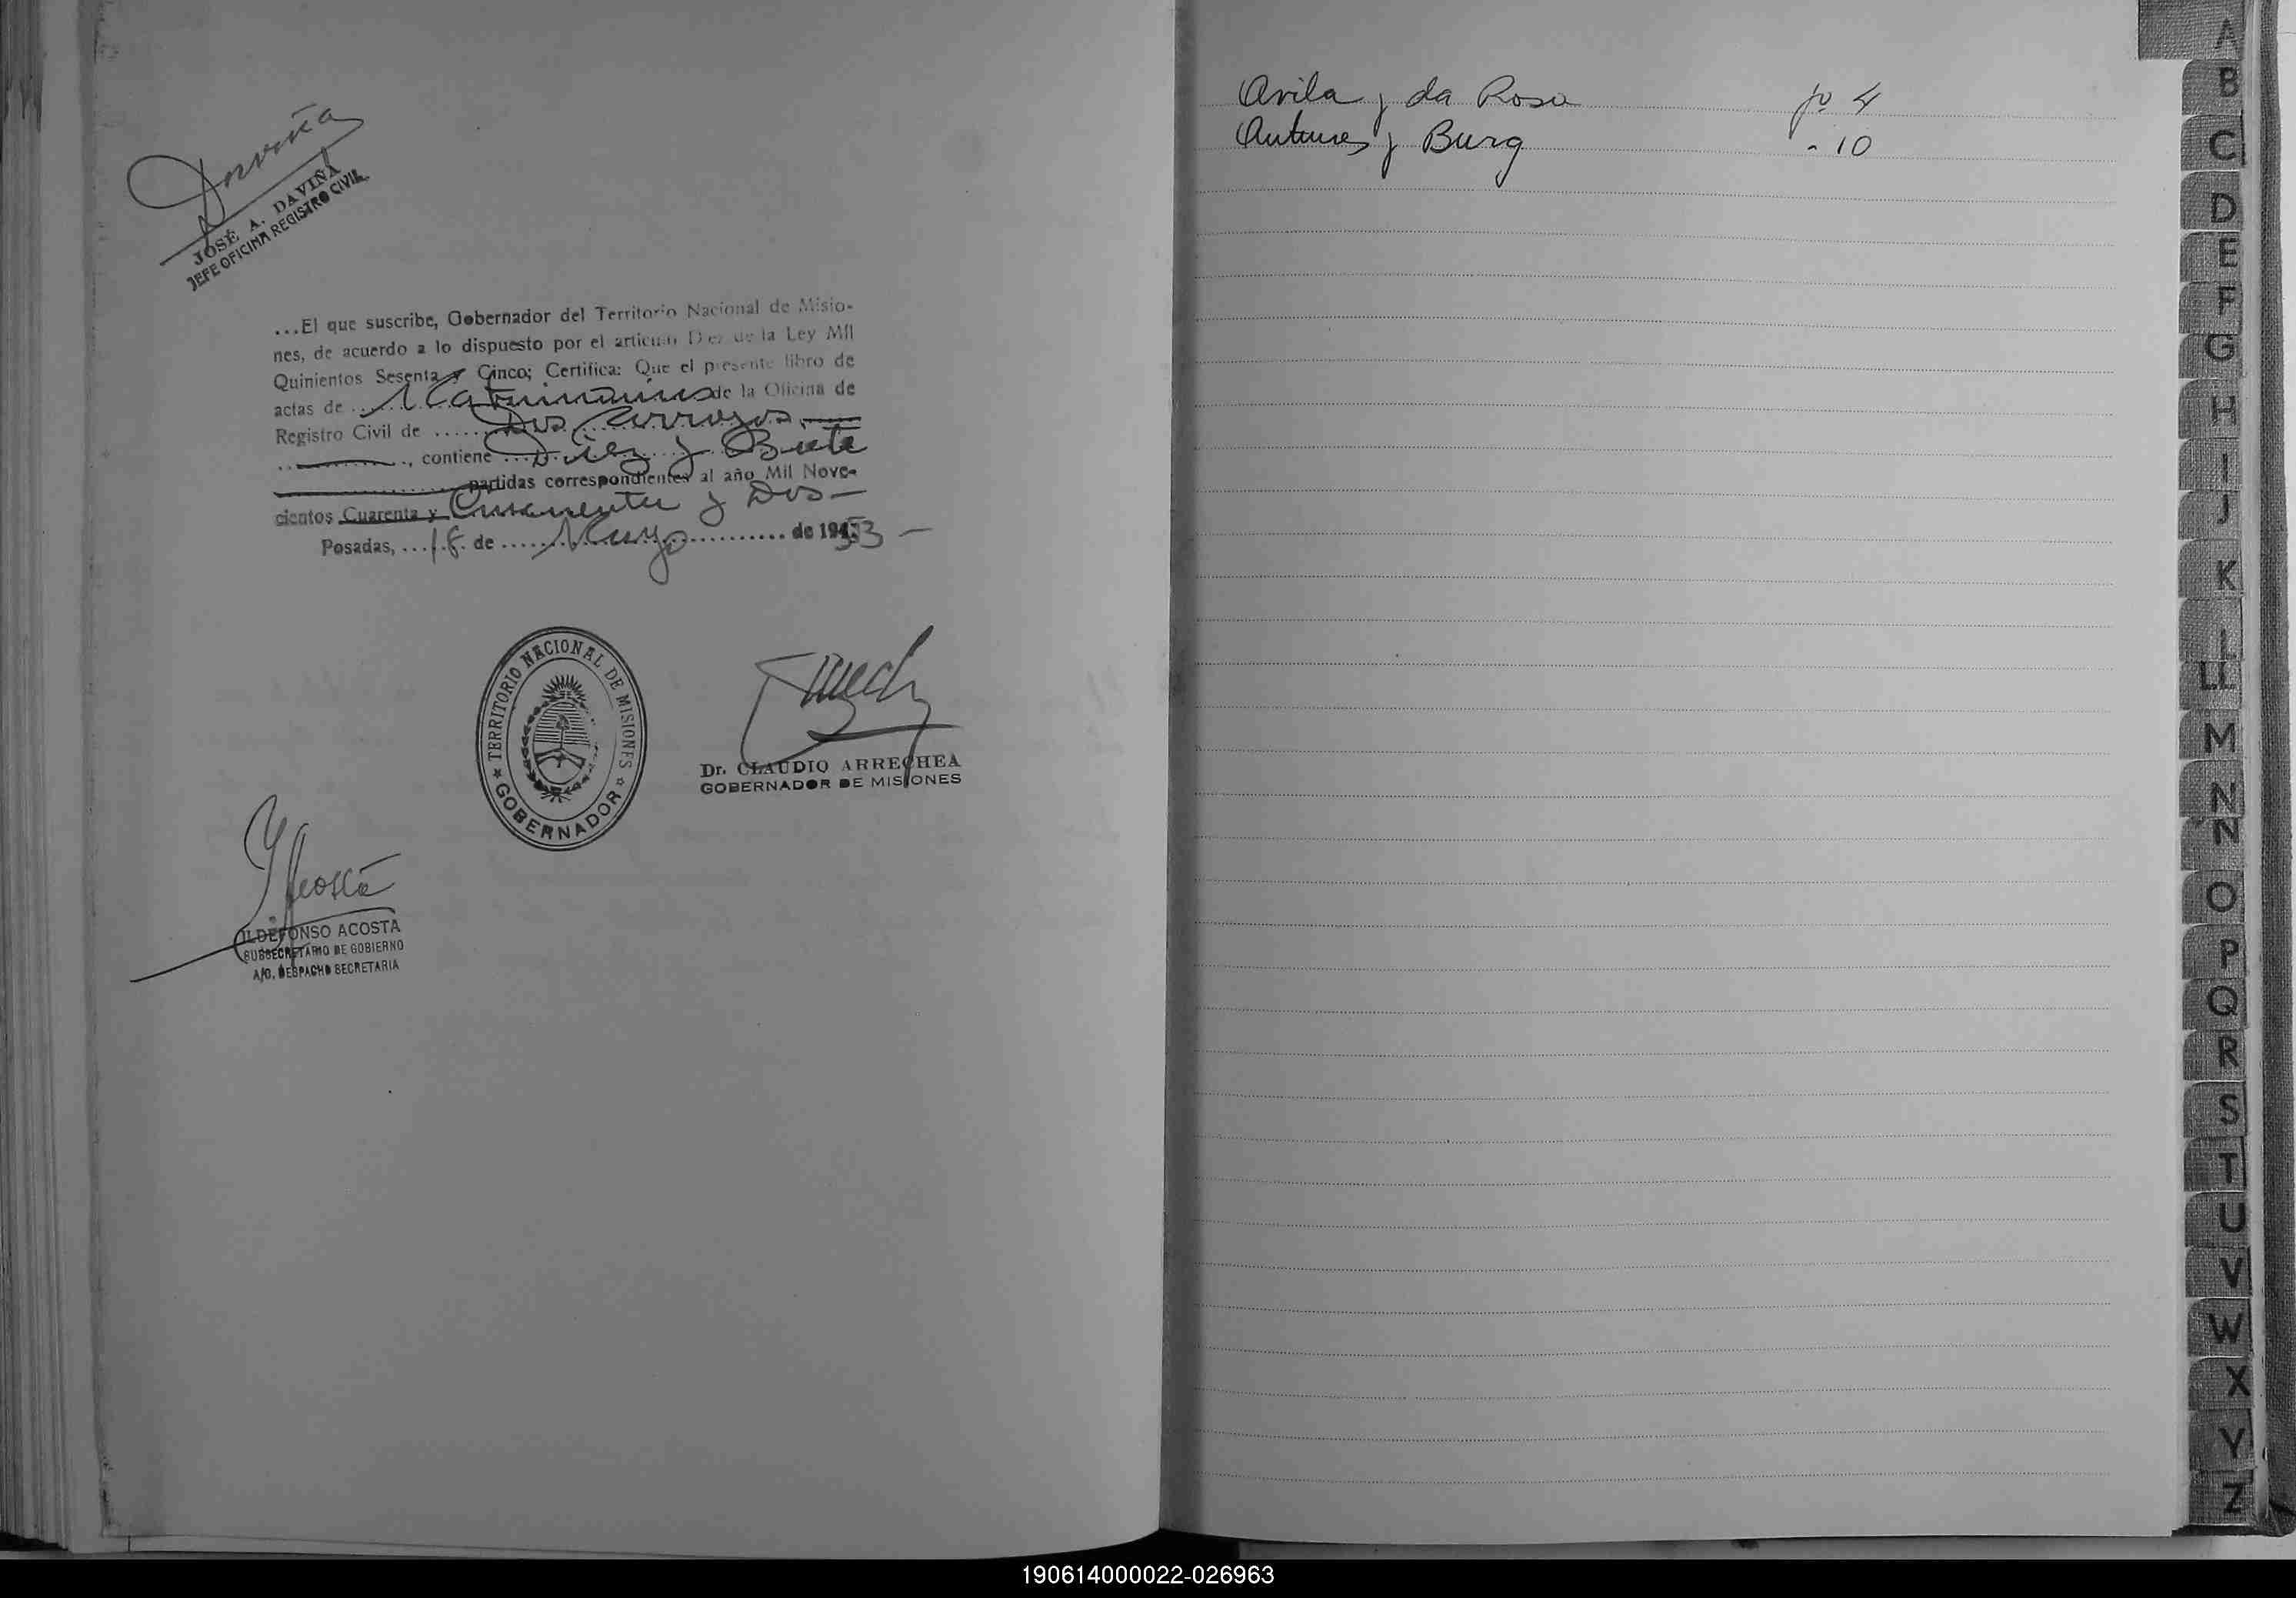 Daviña
JOSÉ A. DAVIÑA
JEFE OFICINA REGISTRO CIVIL
...El que suscribe, Gobernador del Territorio Nacional de Misio-
nes, de acuerdo a lo dispuesto por el artículo Diez de la Ley Mil
Quinientos Sesenta y Cinco; Certifica: Que el presente libro de
actas de ... Matrimonios de la Oficina de
Registro Civil de ...... Dos Arroyos.
..........., contiene .... Diez y Siete
partidas correspondientes al año Mil Nove-
cientos Cuarenta y Cincuenta y Dos —
Posadas, ... 18. de ... Mayo ............ de 1953 —
TERRITORIO NACIONAL DE MISIONES
GOBERNADOR
Dr. CLAUDIO ARRECHEA
GOBERNADOR DE MISIONES
Acosta
ILDEFONSO ACOSTA
SUBSECRETARIO DE GOBIERNO
A/C. DESPACHO SECRETARIA
Avila y da Rosa fº 4
Antunes y Burg " 10
A
B
C
D
E
F
G
H
I
J
K
L
LL
M
N
Ñ
O
P
Q
R
S
T
U
V
W
X
Y
Z
190614000022-026963